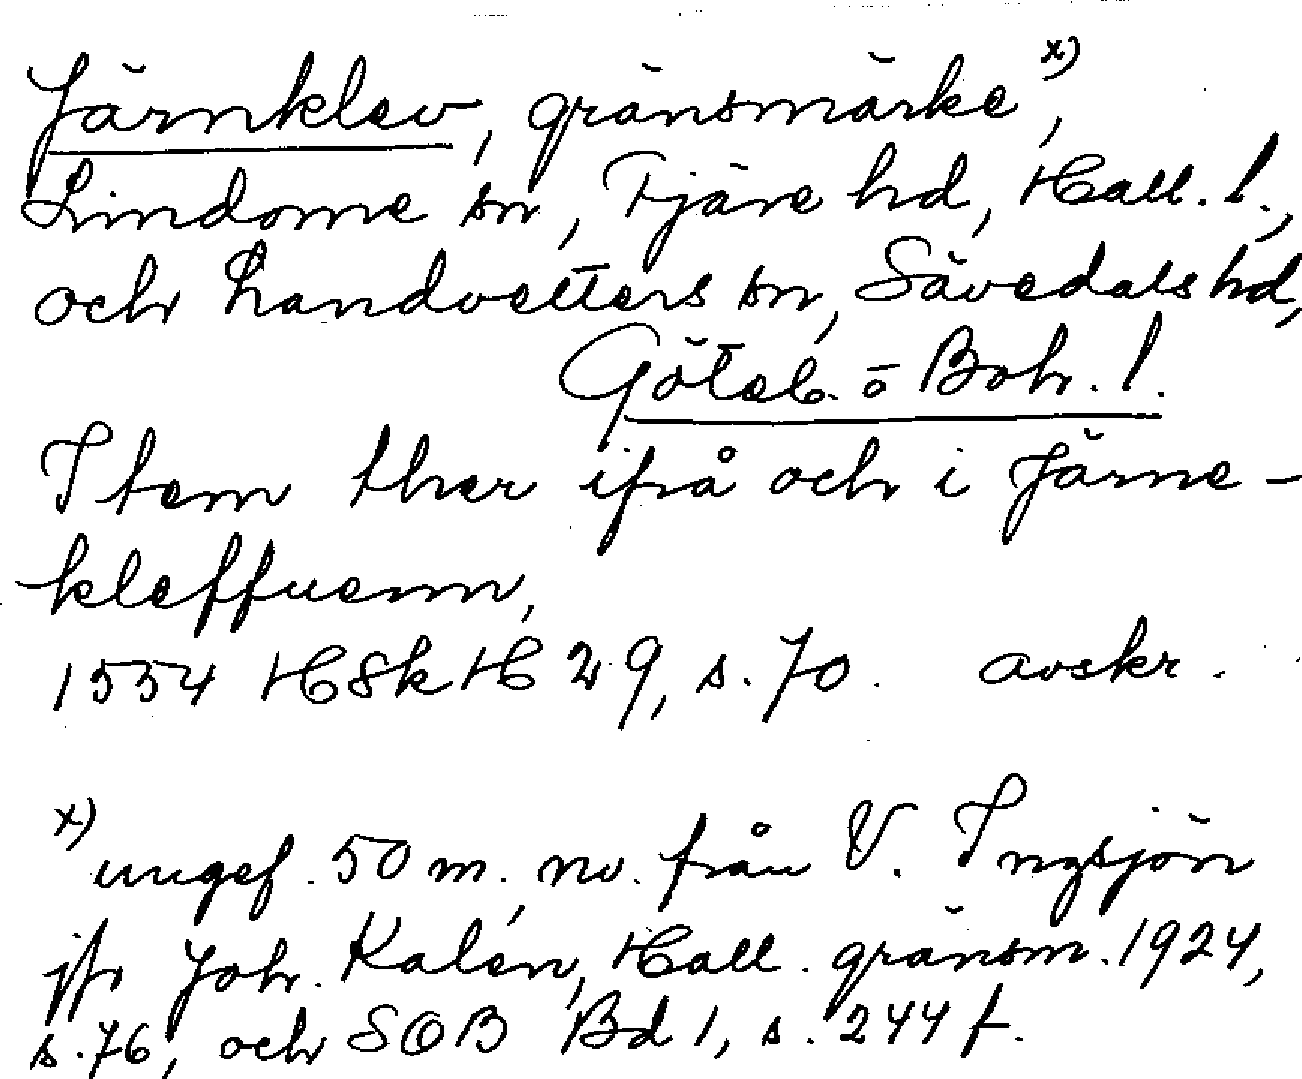 Järnklev, gränsmärke x),
Lindome sn, Fjäre hd, Hall. l.,
och Landvetters sn, Sävedals hd,
Göteb. o Boh. l.
Item ther ifrå och i Järne-
kleffuenn,
1554 HSkH 29, s. 70. avskr.
x) ungef. 50 m. nv. från V. Ingsjön
jfr Joh. Kalén, Hall. gränsm. 1924,
s. 76, och SOB Bd 1, s. 244 f.